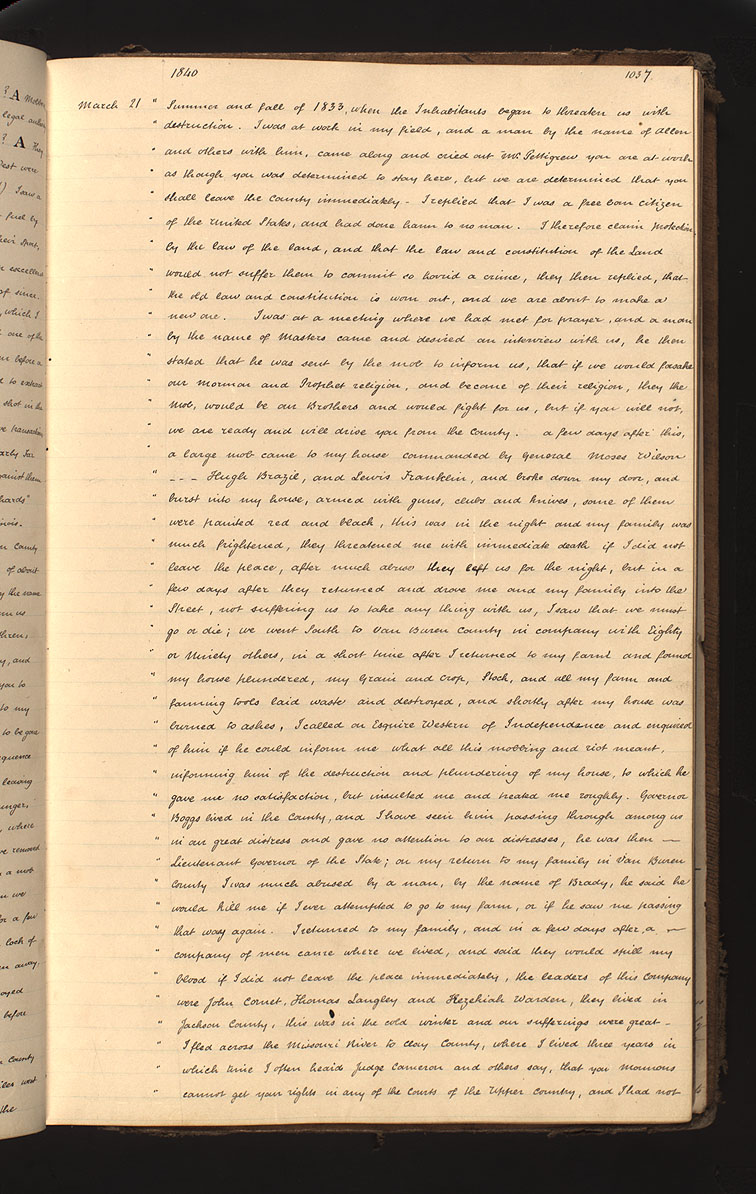 1840
1037
March 21 " Summer and fall of 1833, when the Inhabitants began to threaten us with
" destruction. I was at work in my field, and a man by the name of Allen
" and others with him, came along and cried out Mr. Pettigrew you are at work
" as though you was determined to stay here, but we are determined that you
" shall leave the County immediately – I replied that I was a free born citizen
" of the United States, and had done harm to no man. I therefore claim protection
" by the law of the land, and that the law and constitution of the Land
" would not suffer them to commit so horrid a crime, they then replied, that
" the old law and constitution is worn out, and we are about to make a
" new one. I was at a meeting where we had met for prayer, and a man
" by the name of Masters came and desired an interview with us, he then
" stated that he was sent by the mob to inform us, that if we would forsake
" our mormon and Prophet religion, and become of their religion, they the
" Mob, would be our Brothers and would fight for us, but if you will not,
" we are ready and will drive you from the County. a few days after this,
" a large mob came to my house commanded by General Moses Wilson
" – – – Hugh Brazil, and Lewis Franklin, and broke down my door, and
" burst into my house, armed with guns, clubs and knives, some of them
" were painted red and black, this was in the night and my family was
" much frightened, they threatened me with immediate death if I did not
" leave the place, after much abuse they left us for the night, but in a
" few days after they returned and drove me and my family into the
" Street, not suffering us to take any thing with us, I saw that we must
" go or die; we went South to Van Buren County in company with Eighty
" or Ninety others, in a short time after I returned to my farm and found
" my house plundered, my Grain and crop, Stock, and all my farm and
" farming tools laid waste and destroyed, and shortly after my house was
" burned to ashes, I called on Esquire Western of Independance and enquired
" of him if he could inform me what all this mobbing and riot meant,
" informing him of the destruction and plundering of my house, to which he
" gave me no satisfaction, but insulted me and treated me roughly. Governor
" Boggs lived in the County, and I have seen him passing through among us
" in our great distress and gave no attention to our distresses, he was then —
" Lieutenant Governor of the State; on my return to my family in Van Buren
" County I was much abused by a man, by the name of Brady, he said he
" would kill me if I ever attempted to go to my farm, or if he saw me passing
" that way again. I returned to my family, and in a few days after, a —
" company of men came where we lived, and said they would spill my
" blood if I did not leave the place immediately, the leaders of this Company
" were John Cornet, Thomas Langley and Hezekiah Warden, they lived in
" Jackson County, this was in the cold winter and our sufferings were great –
" I fled across the Missouri River to Clay County, where I lived three years in
" which time I often heard Judge Cameron and others say, that you mormons
" cannot get your rights in any of the Courts of the Upper Country, and I had not